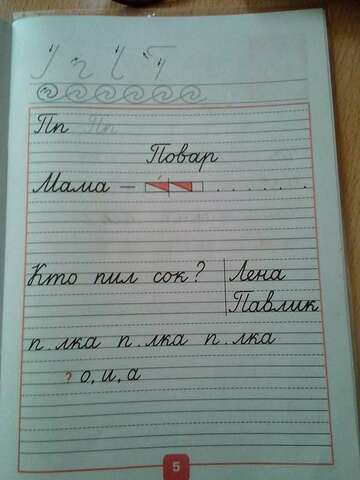 Пп Пп
Повар
Мама —
Кто пил сок? Лена
Павлик
п.лка п.лка п.лка
? о, и, а
5